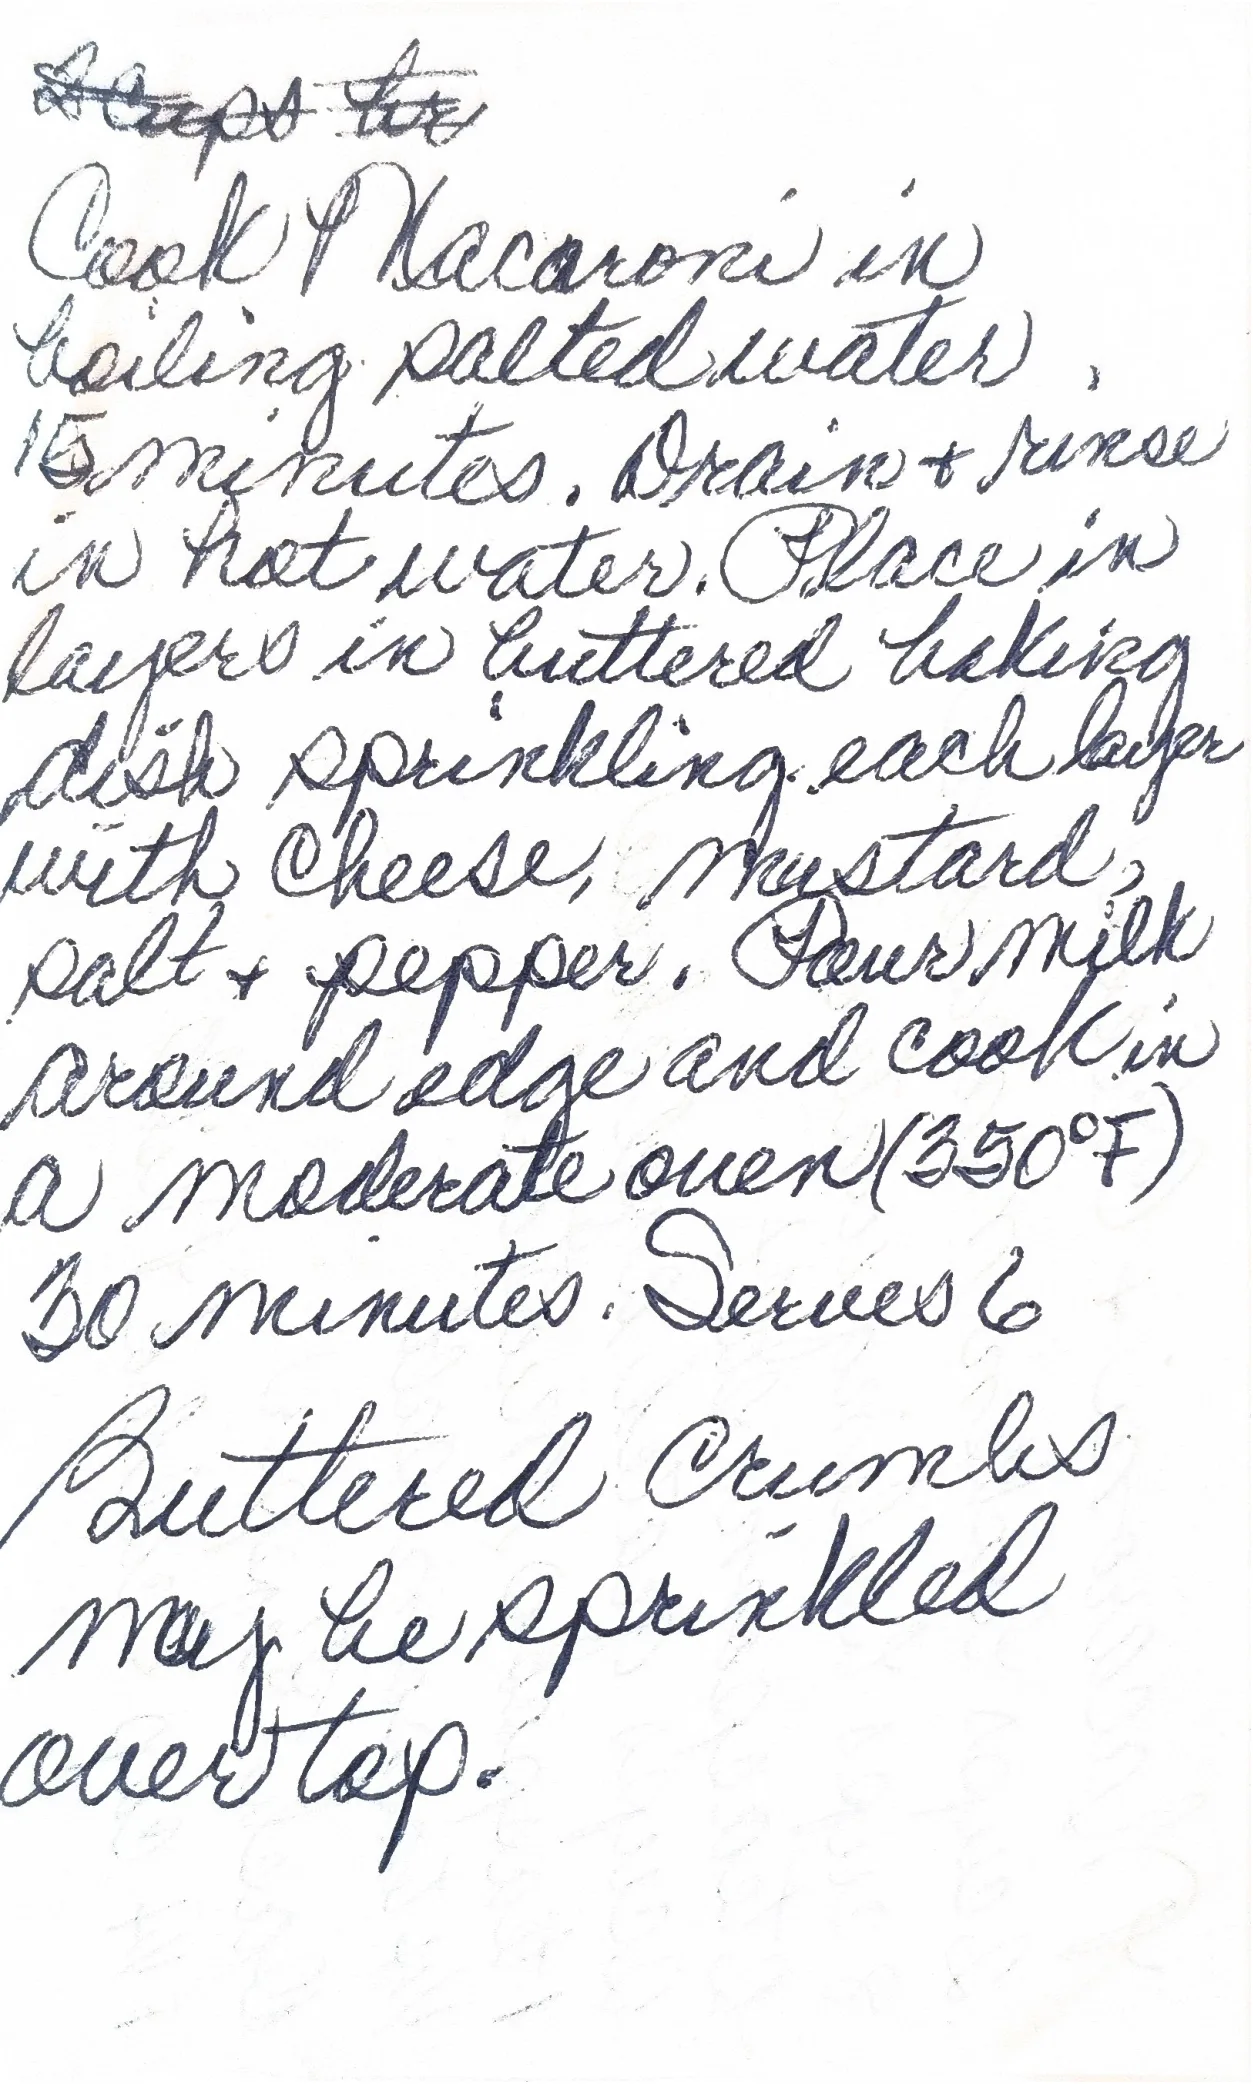 Cook Macaroni in
boiling salted water,
15 minutes. Drain + rinse
in hot water. Place in
layers in buttered baking
dish sprinkling each layer
with Cheese, Mustard,
salt + pepper. Pour Milk
around edge and cook in
a moderate oven (350°F)
30 minutes. Serves 6
Buttered Crumbs
may be sprinkled
over top.